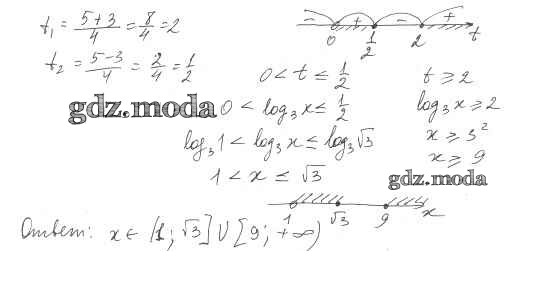 t₁ = (5+3)/4 = 8/4 = 2
t₂ = (5-3)/4 = 2/4 = 1/2
- + - +
0 1/2 2 t
0 < t ≤ 1/2 t ≥ 2
gdz.moda
0 < log₃x ≤ 1/2 log₃x ≥ 2
log₃1 < log₃x ≤ log₃√3 x ≥ 3²
1 < x ≤ √3 x ≥ 9
gdz.moda
1 √3 9 x
Ответ: x ∈ (1; √3] ∪ [9; +∞)